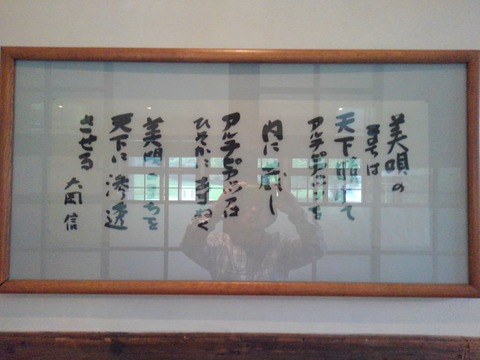 美唄の
まちは
天下晴けて
アルテピアッツァを
内に蔵し
アルテピアッツァは
ひそかにすばやく
美唄のまちを
天下に滲透
させる
大岡信